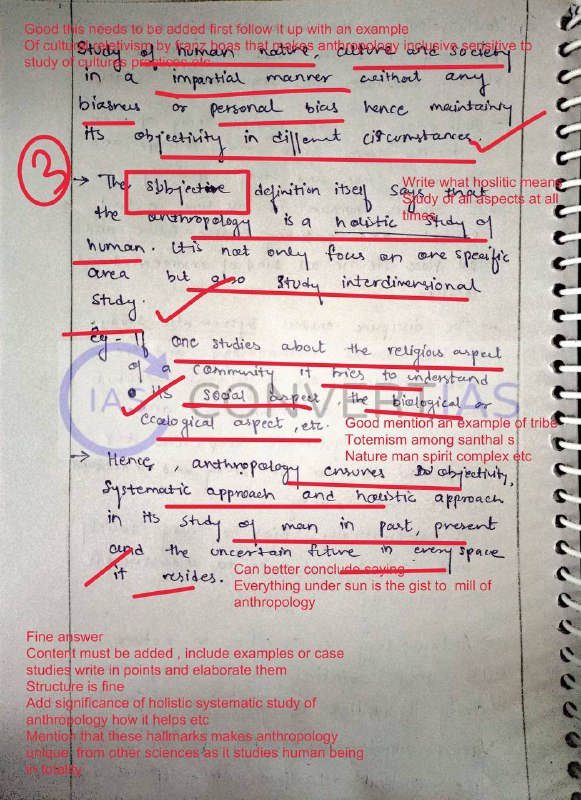 Good this needs to be added first follow it up with an example
Of cultural relativism by franz boas that makes anthropology inclusive sensitive to
study of cultures practices etc
Study of human nature, culture and society
in a impartial manner without any
biasness or personal bias hence maintaining
its objectivity in different circumstances.
3
→ The subjective definition itself says that
the anthropology is a holistic study of
human. It is not only focus on one specific
area but also study interdimensional
study.
Write what hoslitic means
Study of all aspects at all
times
Eg - If one studies about the religious aspect
of a community it tries to understand
its social aspect, the biological or
ecological aspect, etc.
IAS CONVERT IAS
Good mention an example of tribe
Totemism among santhal s
Nature man spirit complex etc
→ Hence, anthropology ensures objectivity,
systematic approach and holistic approach
in its study of man in past, present
and the uncertain future in every space
it resides.
Can better conclude saying
Everything under sun is the gist to mill of
anthropology
Fine answer
Content must be added , include examples or case
studies write in points and elaborate them
Structure is fine
Add significance of holistic systematic study of
anthropology how it helps etc
Mention that these hallmarks makes anthropology
unique from other sciences as it studies human being
in totality